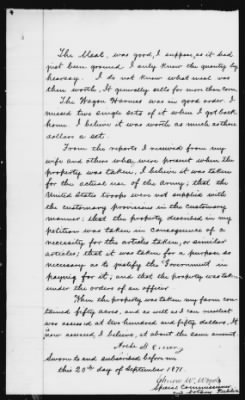 The Meal, was good, I suppose, as it had
just been ground I only know the quantity by
hearsay. I do not know what meal was
then worth. It generally sells for more than corn.
The Wagon Harness was in good order. I
missed two single sets of it when I got back
home I believe it was worth as much as
dollars a set.
From the reports I received from my
wife and others who were present when the
property was taken, I believe it was taken
for the actual use of the Army; that the
United States troops were not supplied with
the customary provisions in the customary
manner: that the property described in my
petition was taken in consequence of a
necessity for the articles taken, or similar
articles; that it was taken for a purpose so
necessary as to justify the Government in
paying for it; and that the property was taken
under the orders of an officer.
When the property was taken my farm con-
tained fifty acres, and as well as I can recollect
was assessed at two hundred and fifty dollars. It
now assessed, I believe, at about the same amount
Sworn to and subscribed before me
this 20th day of September 1871.
Special Commissioner